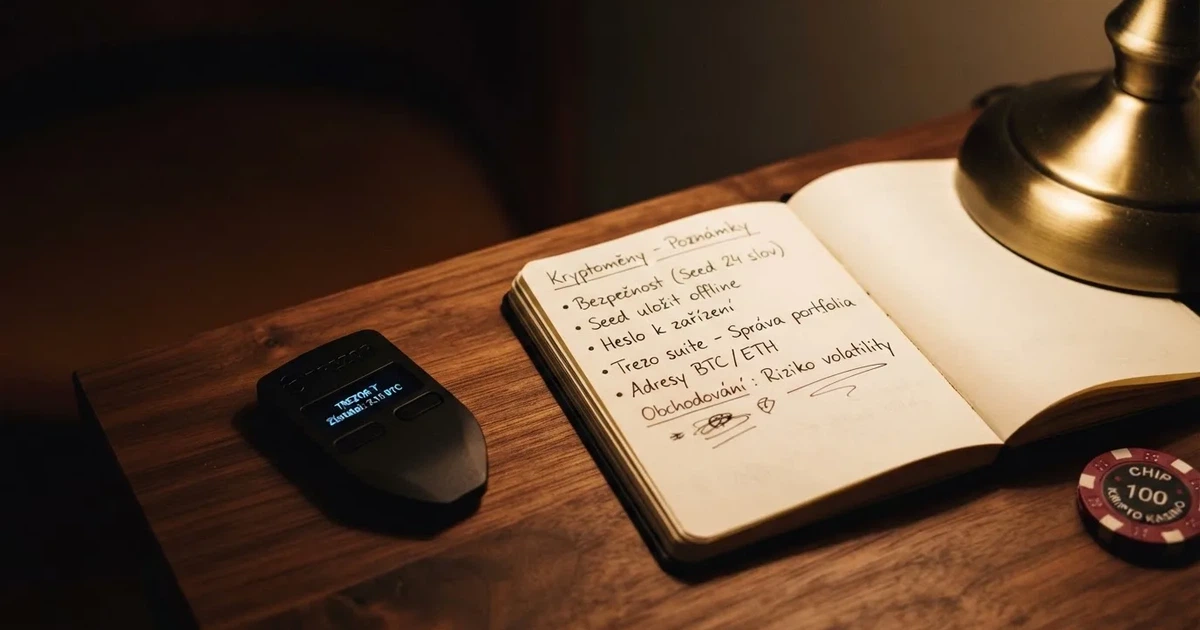 Kryptoměny - Poznámky
• Bezpečnost (Seed 24 slov)
• Seed uložit offline
• Heslo k zařízení
• Trezo suite - Správa portfolia
• Adresy BTC/ETH
Obchodování: Riziko volatility
TREZOR T
BTC
CHIP
100
KRYPTO KASINO